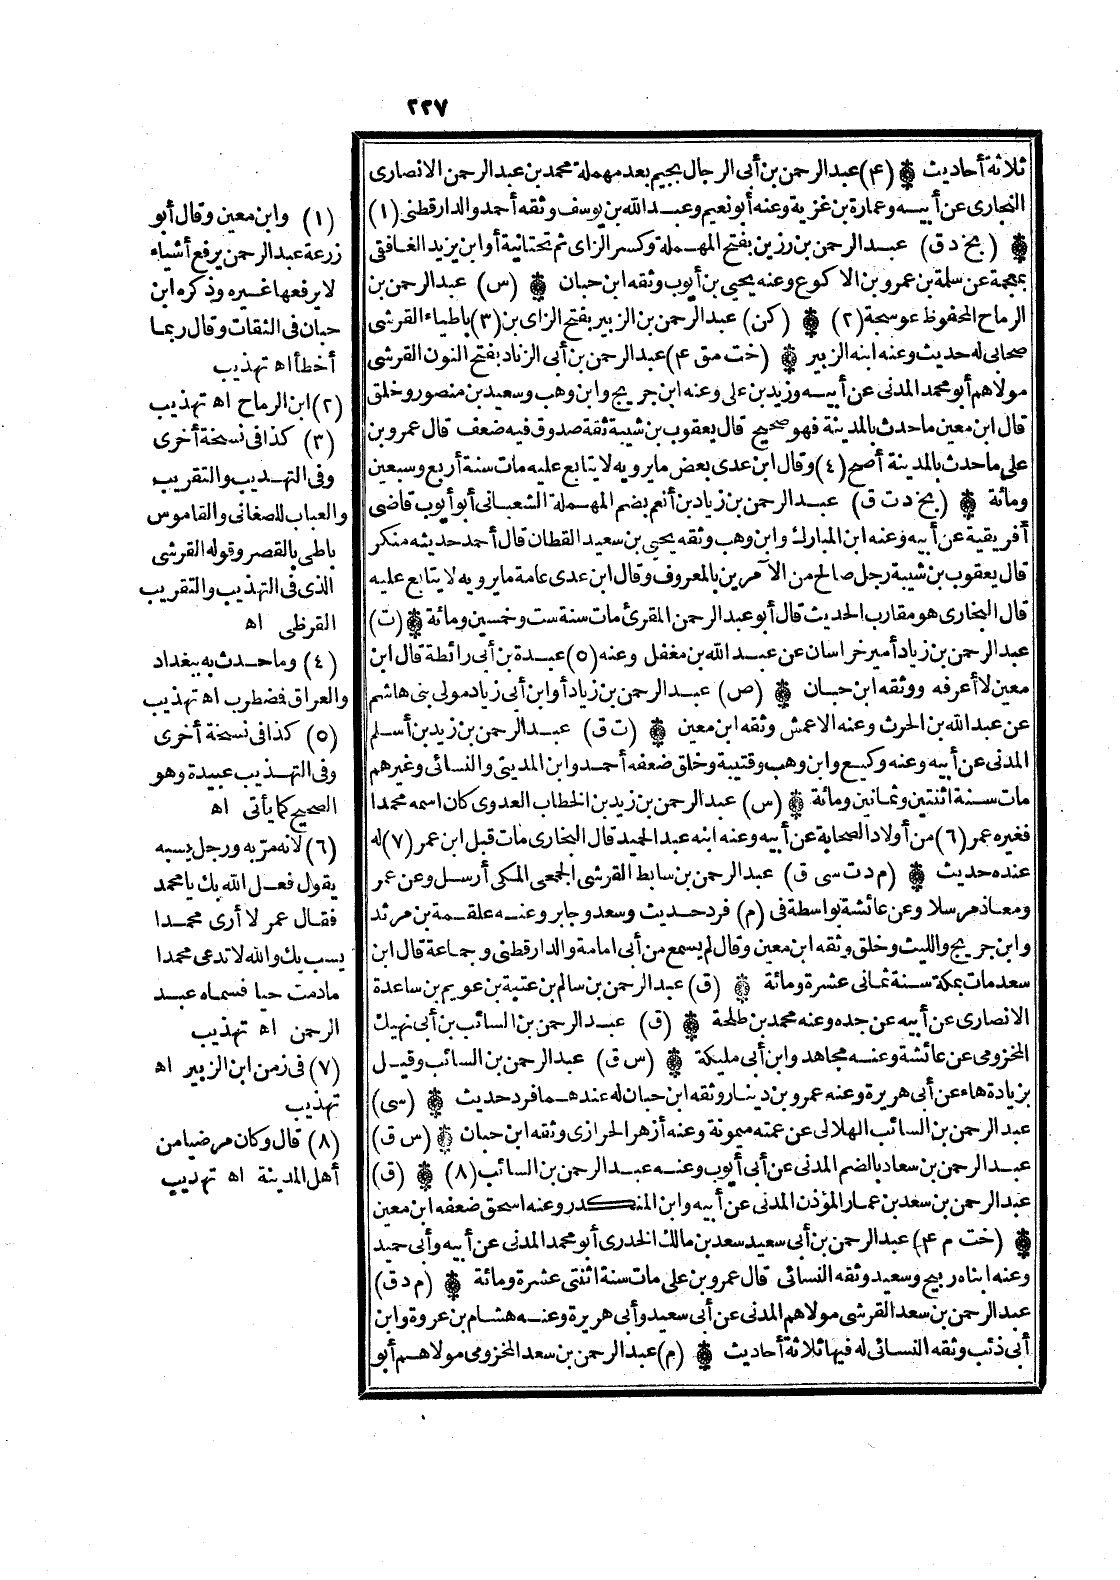 ٢٢٧
ثلاثة أحاديث ۞ (٤) عبد الرحمن بن أبى الرجال بجيم بعد مهملة محمد بن عبد الرحمن الانصارى
النجارى عن أبيه وعمارة بن غزية وعنه أبو نعيم وعبد الله بن يوسف وثقه أحمد والدارقطنى (١)
۞ (بخ د ق) عبد الرحمن بن رزين بفتح المهملة وكسر الزاى ثم تحتانية أو ابن يزيد الغافقى
بمعجمة عن سلمة بن عمرو بن الاكوع وعنه يحيى بن أيوب وثقه ابن حبان ۞ (س) عبد الرحمن بن
الرماح المحفوظ عوسجة (٢) ۞ (كن) عبد الرحمن بن الزبير بفتح الزاى بن (٣) باطياء القرشى
صحابى له حديث وعنه ابنه الزبير ۞ (خت مق ٤) عبد الرحمن بن أبى الزناد بفتح النون القرشى
مولاهم أبو محمد المدنى عن أبيه وزيد بن على وعنه ابن جريج وابن وهب وسعيد بن منصور وخلق
قال ابن معين ما حدث بالمدينة فهو صحيح قال يعقوب بن شيبة ثقة صدوق فيه ضعف قال عمرو بن
على ما حدث بالمدينة أصح (٤) وقال ابن عدى بعض ما يرويه لا يتابع عليه مات سنة أربع وسبعين
ومائة ۞ (بخ د ت ق) عبد الرحمن بن زياد بن أنعم بضم المهملة الشعبانى أبو أيوب قاضى
أفريقية عن أبيه وعنه ابن المبارك وابن وهب وثقه يحيى بن سعيد القطان قال أحمد حديثه منكر
قال يعقوب بن شيبة رجل صالح من الآمرين بالمعروف وقال ابن عدى عامة ما يرويه لا يتابع عليه
قال البخارى هو مقارب الحديث قال أبو عبد الرحمن المقرئ مات سنة ست وخمسين ومائة ۞ (ت)
عبد الرحمن بن زياد أمير خراسان عن عبد الله بن مغفل وعنه (٥) عبدة بن أبى رائطة قال ابن
معين لا أعرفه ووثقه ابن حبان ۞ (ص) عبد الرحمن بن زياد أو ابن أبى زياد مولى بنى هاشم
عن عبد الله بن الحرث وعنه الاعمش وثقه ابن معين ۞ (ت ق) عبد الرحمن بن زيد بن أسلم
المدنى عن أبيه وعنه وكيع وابن وهب وقتيبة وخلق ضعفه أحمد وابن المدينى والنسائى وغيرهم
مات سنة اثنتين وثمانين ومائة ۞ (س) عبد الرحمن بن زيد بن الخطاب العدوى كان اسمه محمدا
فغيره عمر (٦) من أولاد الصحابة عن أبيه وعنه ابنه عبد الحميد قال البخارى مات قبل ابن عمر (٧) له
عنده حديث ۞ (م د ت سى ق) عبد الرحمن بن سابط القرشى الجمعى المكى أرسل وعن عمر
ومعاذ مرسلا وعن عائشة بواسطة فى (م) فرد حديث وسعد وجابر وعنه علقمة بن مرثد
وابن جريج والليث وخلق وثقه ابن معين وقال لم يسمع من أبى امامة والدارقطنى وجماعة قال ابن
سعد مات بمكة سنة ثمانى عشرة ومائة ۞ (ق) عبد الرحمن بن سالم بن عتبة بن عويم بن ساعدة
الانصارى عن أبيه عن جده وعنه محمد بن طلحة ۞ (ق) عبد الرحمن بن السائب بن أبى نهيك
المخزومى عن عائشة وعنه مجاهد وابن أبى مليكة ۞ (س ق) عبد الرحمن بن السائب وقيل
بزيادة هاء عن أبى هريرة وعنه عمرو بن دينار وثقه ابن حبان له عندهما فرد حديث ۞ (سى)
عبد الرحمن بن السائب الهلالى عن عمته ميمونة وعنه أزهر الحرازى وثقه ابن حبان ۞ (س ق)
عبد الرحمن بن سعاد بالضم المدنى عن أبى أيوب وعنه عبد الرحمن بن السائب (٨) ۞ (ق)
عبد الرحمن بن سعد بن عمار المؤذن المدنى عن أبيه وابن المنكدر وعنه اسحق ضعفه ابن معين
۞ (خت م ٤) عبد الرحمن بن أبى سعيد سعد بن مالك الخدرى أبو محمد المدنى عن أبيه وأبى حميد
وعنه ابناه ربيح وسعيد وثقه النسائى قال عمرو بن على مات سنة اثنتى عشرة ومائة ۞ (م د ق)
عبد الرحمن بن سعد القرشى مولاهم المدنى عن أبى سعيد وأبى هريرة وعنه هشام بن عروة وابن
أبى ذئب وثقه النسائى له فيها ثلاثة أحاديث ۞ (م) عبد الرحمن بن سعد المخزومى مولاهم أبو
(١) وابن معين وقال أبو
زرعة عبد الرحمن يرفع أشياء
لا يرفعها غيره وذكره ابن
حبان فى الثقات وقال ربما
أخطأ اه تهذيب
(٢) ابن الرماح اه تهذيب
(٣) كذا فى نسخة أخرى
وفى التهذيب والتقريب
والعباب للصغانى والقاموس
باطى بالقصر وقوله القرشى
الذى فى التهذيب والتقريب
القرظى اه
(٤) وما حدث به ببغداد
والعراق فضطرب اه تهذيب
(٥) كذا فى نسخة أخرى
وفى التهذيب عبيدة وهو
الصحيح كما يأتى اه
(٦) لانه مر به ورجل يسبه
يقول فعل الله بك يا محمد
فقال عمر لا أرى محمدا
يسب بك والله لا تدعى محمدا
ما دمت حيا فسماه عبد
الرحمن اه تهذيب
(٧) فى زمن ابن الزبير اه
تهذيب
(٨) قال وكان مرضيا من
أهل المدينة اه تهذيب